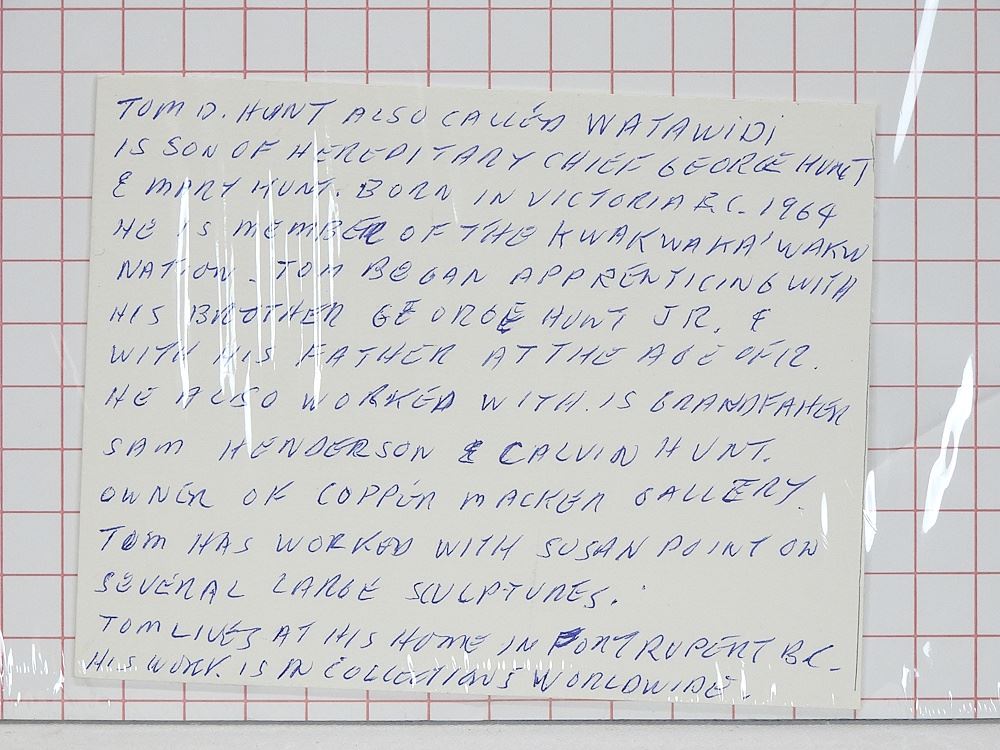 TOM D. HUNT ALSO CALLED WATAWIDI
IS SON OF HEREDITARY CHIEF GEORGE HUNT
& MARY HUNT. BORN IN VICTORIA B.C. 1964
HE IS MEMBER OF THE KWAKWAKA'WAKW
NATION. TOM BEGAN APPRENTICING WITH
HIS BROTHER GEORGE HUNT JR. &
WITH HIS FATHER AT THE AGE OF 12.
HE ALSO WORKED WITH IS GRANDFAHER
SAM HENDERSON & CALVIN HUNT.
OWNER OF COPPER MACKER GALLERY.
TOM HAS WORKED WITH SUSAN POINT ON
SEVERAL LARGE SCULPTURES.
TOM LIVES AT HIS HOME IN FORT RUPERT BC.
HIS WORK IS IN COLLECTIONS WORLDWIDE.